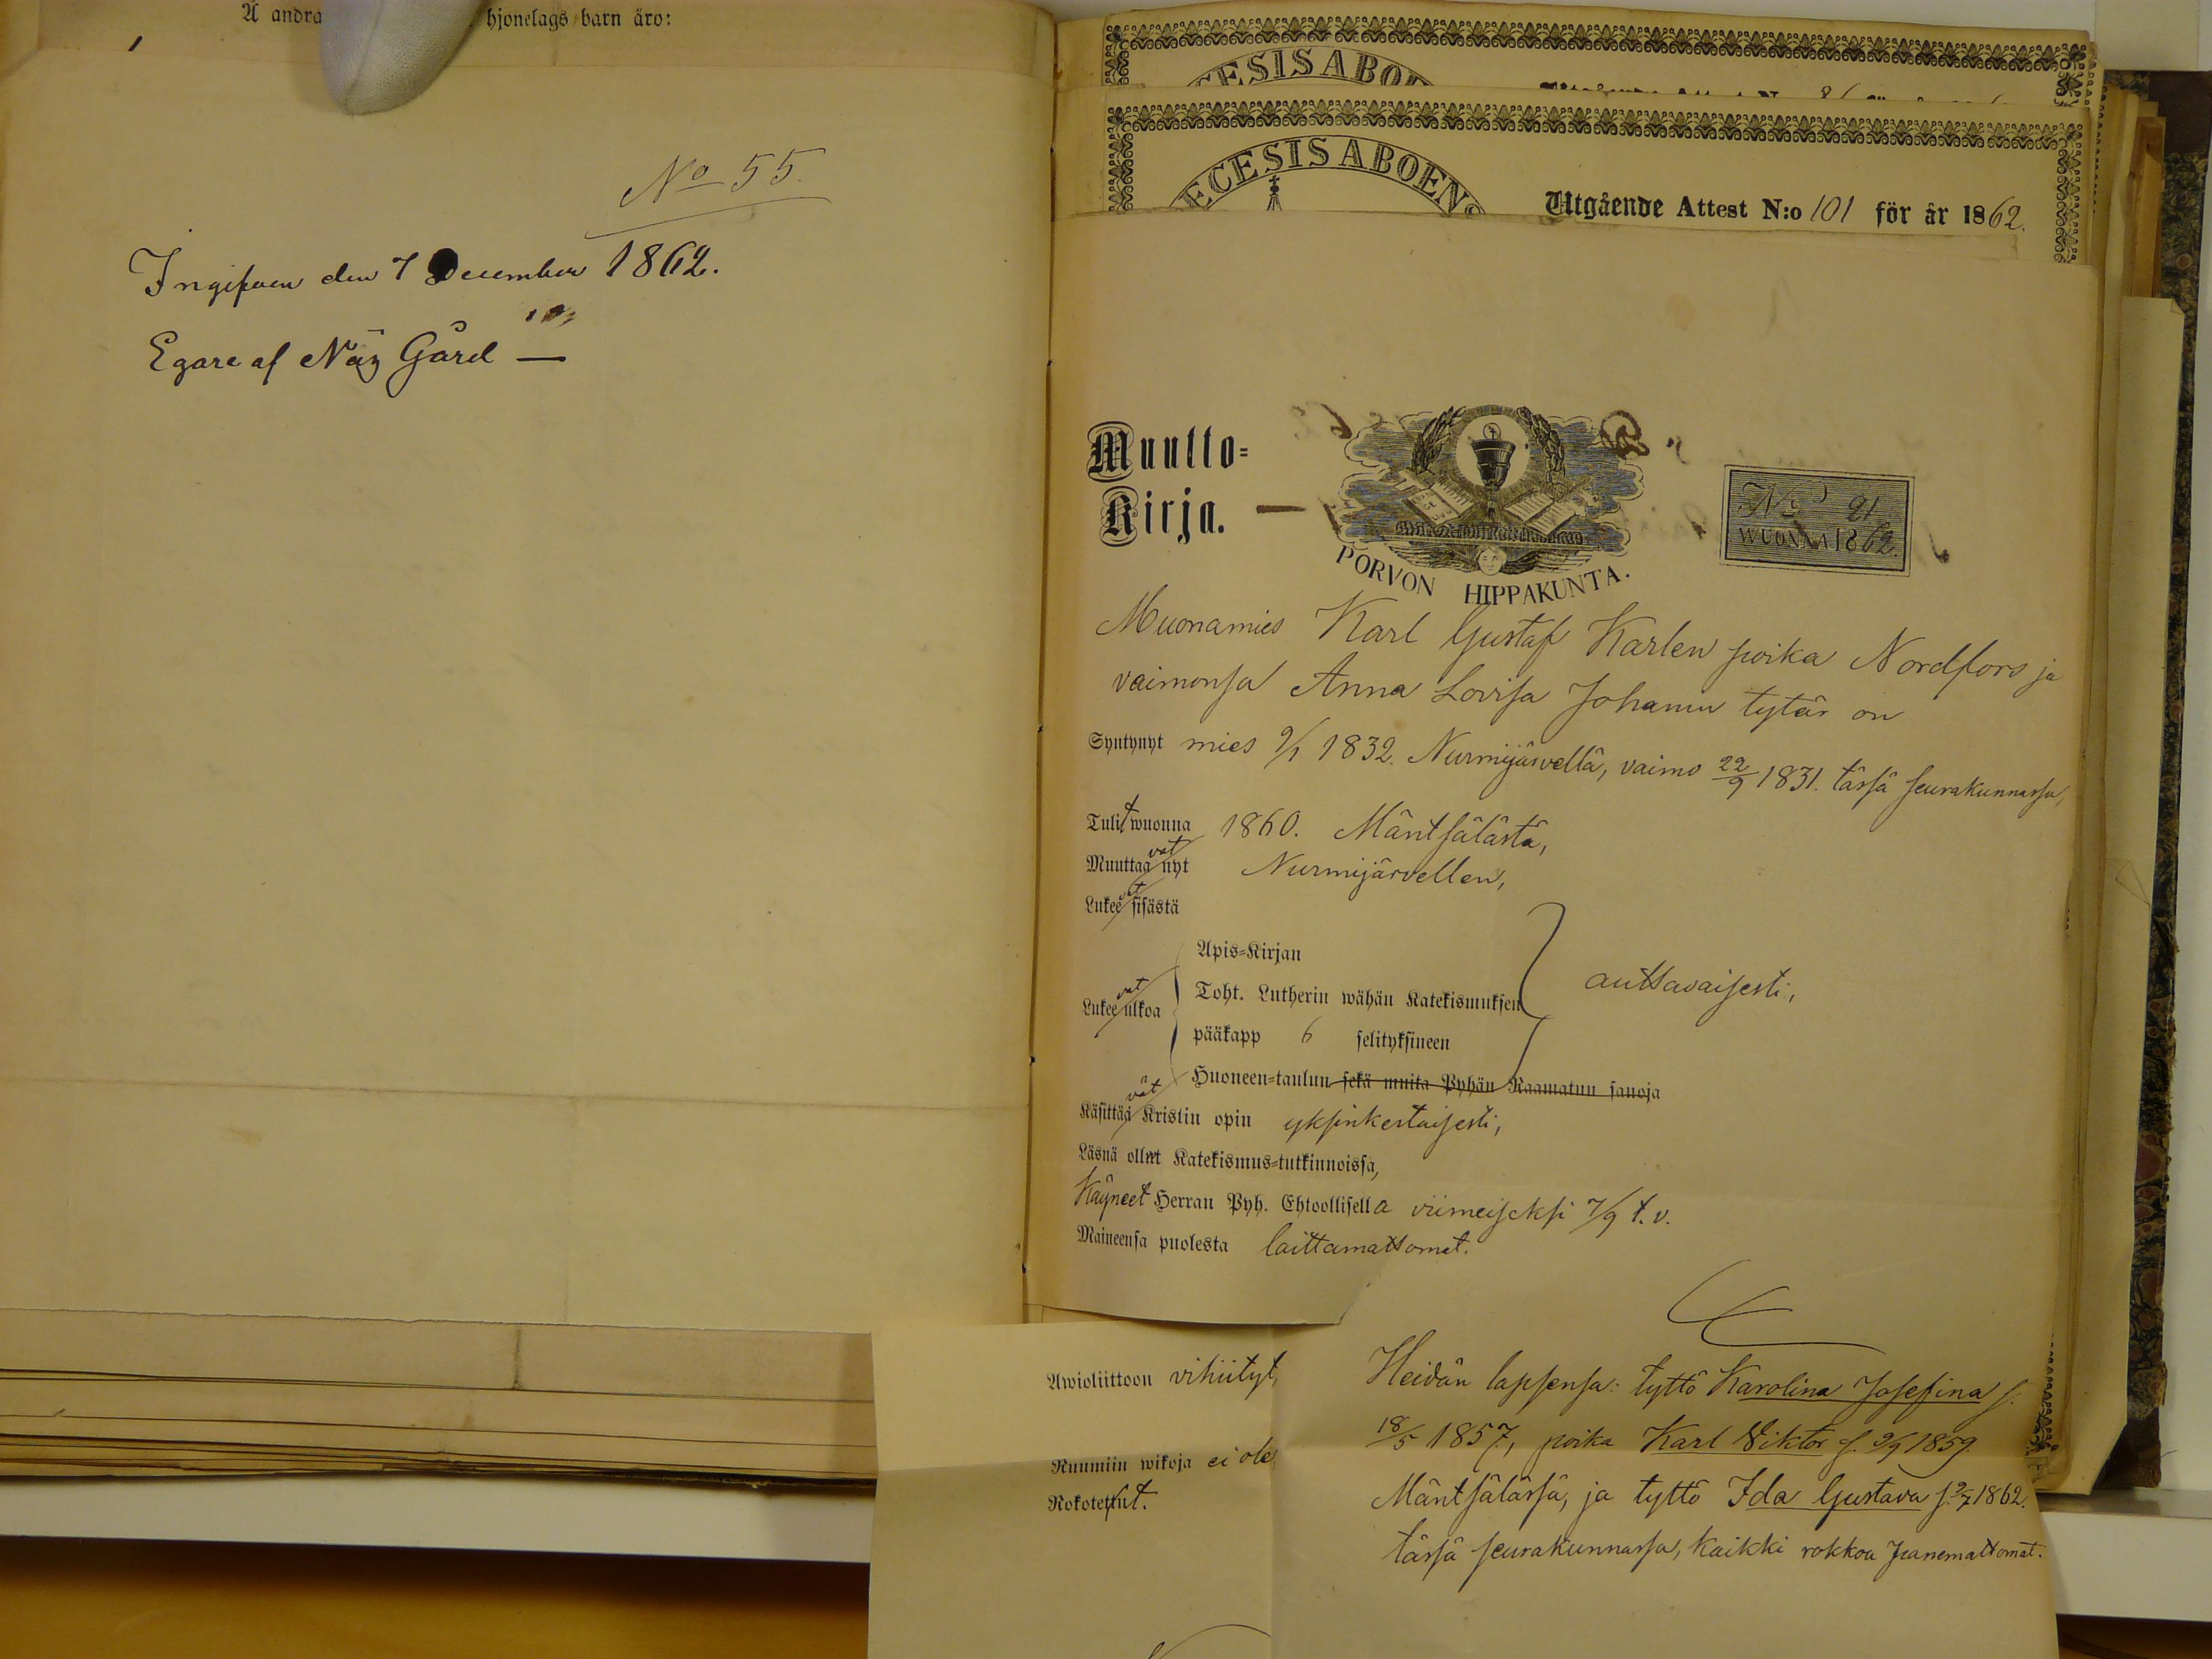 Å andra
hjonelags barn äro:
No 55.
Ingifven den 7 December 1862.
Egare af Näs Gård —
ECESIS ABO
ECESIS ABOEN
Utgående Attest N:o 101 för år 1862.
Muutto=
Kirja. —
PORVON HIPPAKUNTA.
No 91
WUONNA 1862.
Muonamies Karl Gustaf Karlen poika Nordfors ja
vaimonsa Anna Lovisa Johanin tytär on
Syntynyt mies 9/1 1832. Nurmijärvellä, vaimo 22/9 1831. tässä seurakunnassa,
Tulit wuonna 1860. Mäntsälästä,
Muuttaavat nyt Nurmijärvellen,
Lukeevat sisästä
Apis=Kirjan
Lukeevat ulkoa
Toht. Lutherin wähän Katekismuksen
auttavaisesti,
pääkapp 6 selityksineen
Huoneen=taulun sekä muita Pyhän Raamatun sanoja
Käsittäävät Kristin opin yksinkertaisesti,
Läsnä ollut Katekismus=tutkinnoissa,
Käyneet Herran Pyh. Ehtoollisella viimeiseksi 7/9 t.v.
Maineensa puolesta laittamattomat.
Awioliittoon vihityt,
Ruumiin wikoja ei ole
Rokotetut.
Heidän lapsensa: tyttö Karolina Josefina s.
18/5 1857, poika Karl Viktor s. 9/9 1859.
Mäntsälässä, ja tyttö Ida Gustava s. 9/7 1862.
tässä seurakunnassa, kaikki rokkoa panemattomat.